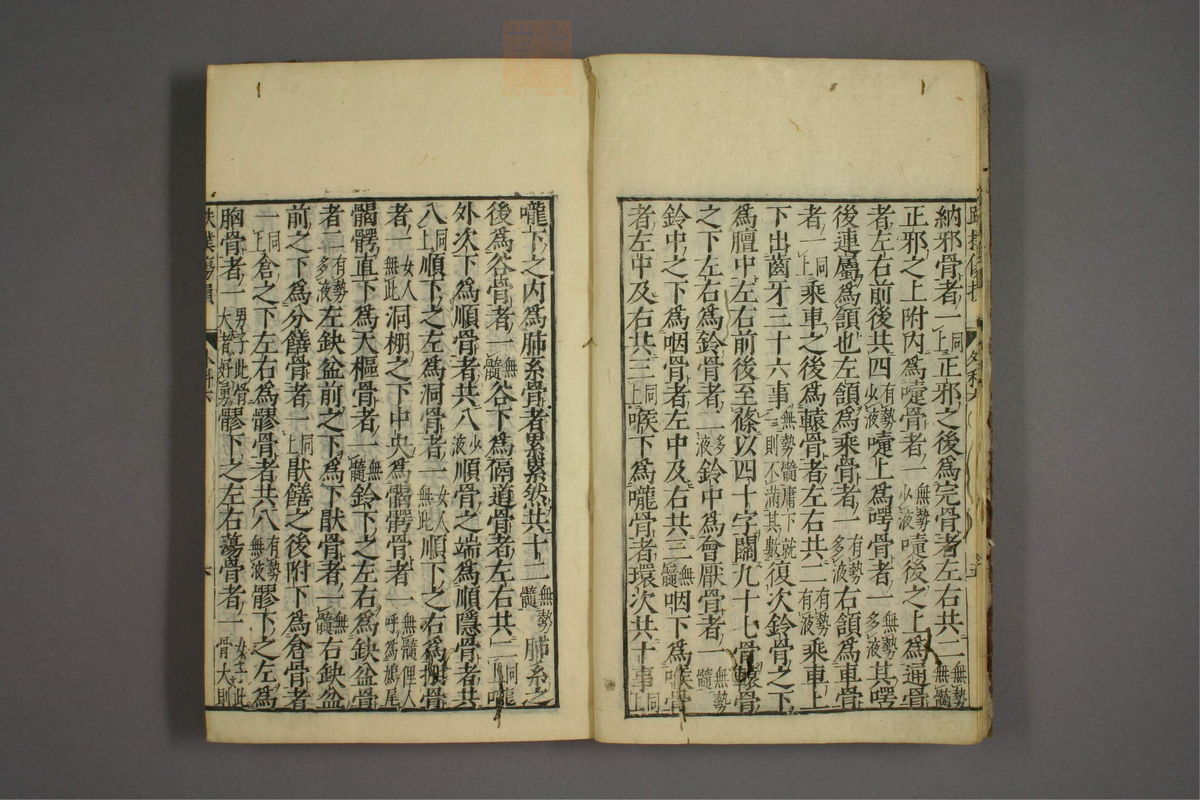 納邪骨者一同上正邪之後為完骨者左右共二無髓
正邪之上附內為嚏骨者一無勢少液嚏後之上為通骨
者左右前後共四有勢少液嚏上為㖾骨者一無勢多液其㖾
後連屬為頷也左頷為乘骨者一有勢多液右頷為車骨
者一同上乘車之後為轅骨者左右共二有勢有液乘車上
下出齒牙三十六事無勢髓庸下就一則不滿其數復次鈴骨之下
為膻中左右前後至篠以四十字關九十七骨轅骨
之下左右為鈴骨者二多液鈴中為會厭骨者一無勢髓
鈴中之下為咽骨者左中及右共三無髓咽下為喉骨
者左中及右共三同上喉下為嚨骨者環次共十事同上
嚨下之內為肺系骨者累累然共十二無勢髓肺系之
後為谷骨者一無髓谷下為䯊道骨者左右共二同嚨
外次下為順骨者共八少液順骨之端為順隱骨者共
八同上順下之左為洞骨者一女人無此順下之右為棚骨
者一女人無此洞棚之下中央為髑骬骨者一無髓俚人呼為鳩尾
髑骬直下為天樞骨者一無髓鈴下之左右為缺盆骨
者二有勢多液左缺盆前之下為下猒骨者一無髓右缺盆
前之下為分饍骨者一同上猒饍之後附下為倉骨者
一同上倉之下左右為髎骨者共八有勢無液髎下之左為
胸骨者一男子此骨大者好勇髎下之左右蕩骨者一女子此骨大則